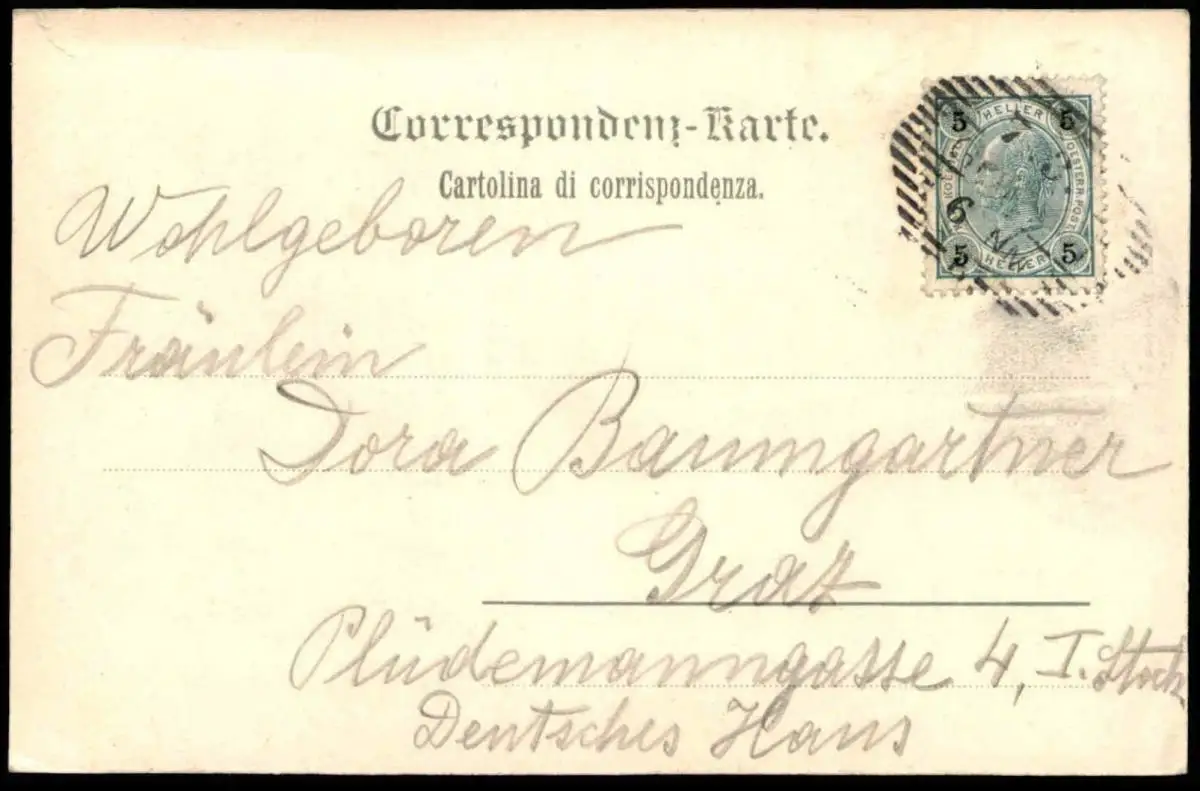 Correspondenz-Karte.
Cartolina di corrispondenza.
5 HELLER 5
5 HELLER 5
Wohlgeboren
Fräulein
Dora Baumgartner
Graz
Plüdemanngasse 4, I. Stock
Deutsches Haus